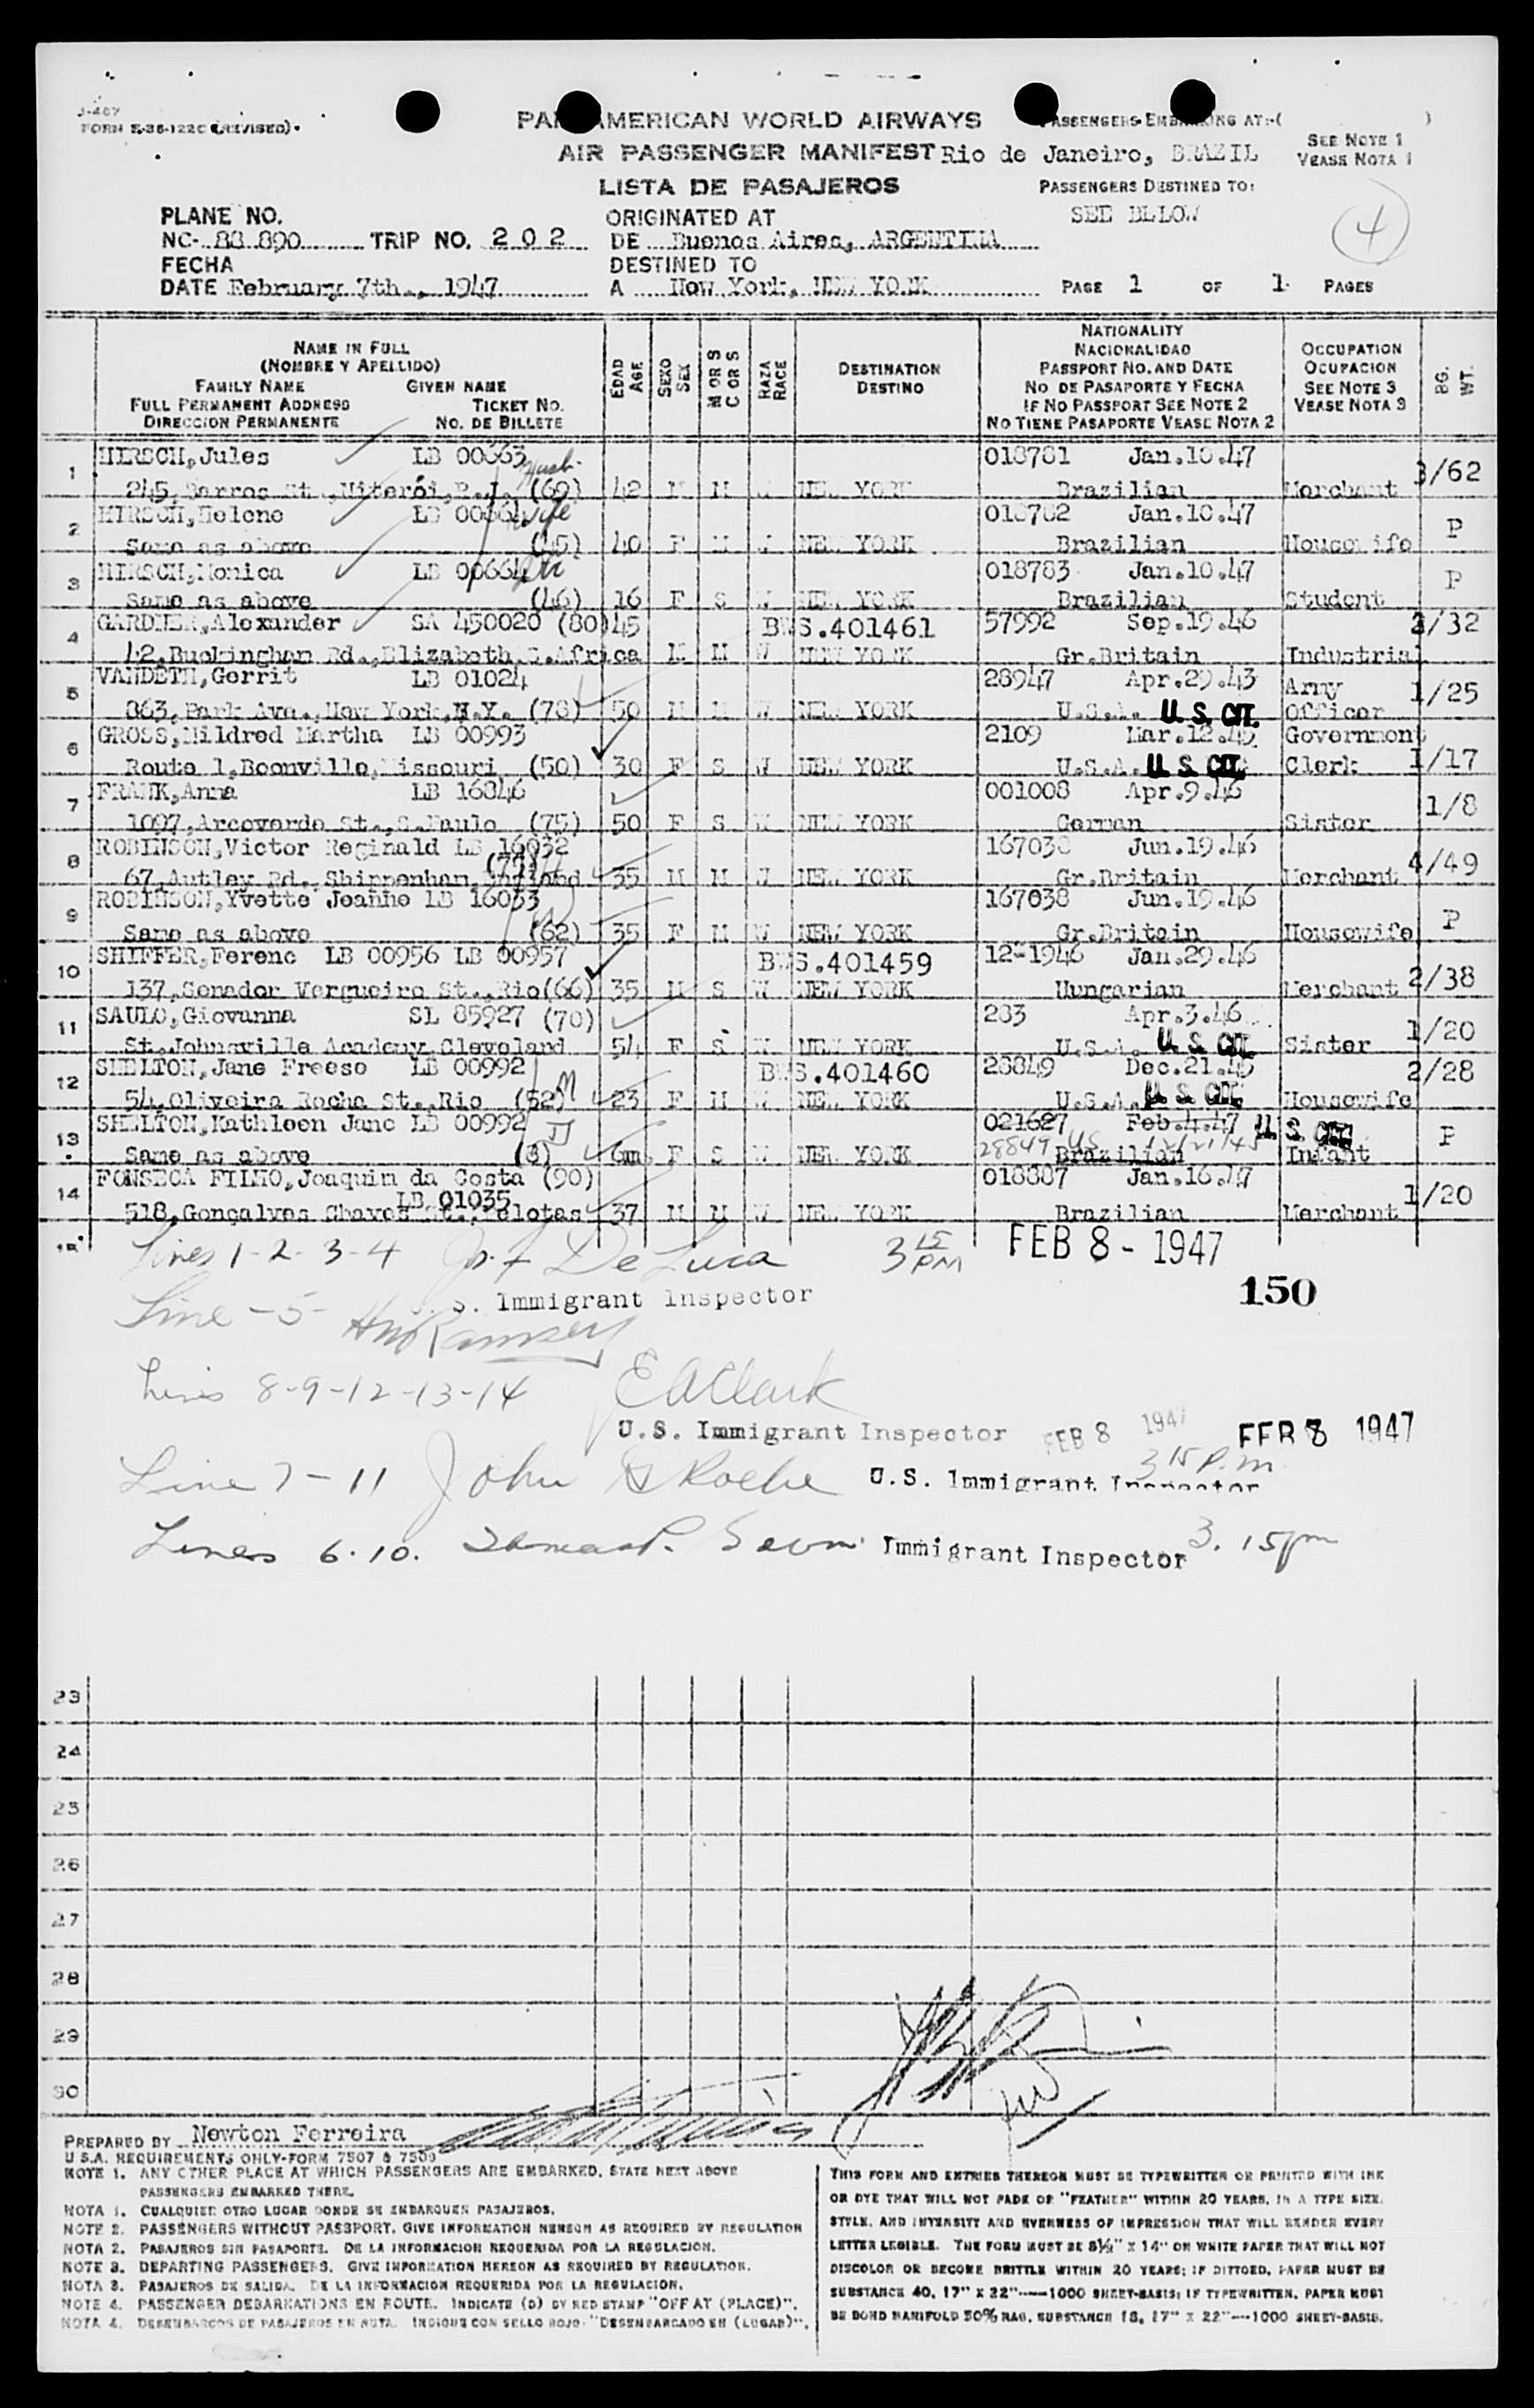 J-467
FORM E-36-122C (REVISED).
PAN AMERICAN WORLD AIRWAYS
PASSENGERS EMBARKING AT:-( )
AIR PASSENGER MANIFEST Rio de Janeiro, BRAZIL
SEE NOTE 1
VEASE NOTA 1
LISTA DE PASAJEROS
PASSENGERS DESTINED TO:
SEE BELOW
4
PLANE NO.
NC- 88 890 TRIP NO. 202
ORIGINATED AT
DE Buenos Aires, ARGENTINA
FECHA
DATE February 7th., 1947
DESTINED TO
A New York, NEW YORK
PAGE 1 OF 1. PAGES
NAME IN FULL
(NOMBRE Y APELLIDO)
FAMILY NAME GIVEN NAME
FULL PERMANENT ADDRESS TICKET NO.
DIRECCION PERMANENTE NO. DE BILLETE
EDAD AGE
SEXO SEX
M OR S C OR S
RAZA RACE
DESTINATION
DESTINO
NATIONALITY
NACIONALIDAD
PASSPORT NO. AND DATE
NO DE PASAPORTE Y FECHA
IF NO PASSPORT SEE NOTE 2
NO TIENE PASAPORTE VEASE NOTA 2
OCCUPATION
OCUPACION
SEE NOTE 3
VEASE NOTA 3
BG. WT.
1 HIRSCH, Jules LB 00663 Husb. 018781 Jan.10.47 3/62
245, Barros St., Niterói, R.J. (69) 42 M M W NEW YORK Brazilian Merchant
2 HIRSCH, Helene LB 00664 Wife 018782 Jan.10.47 P
Same as above (45) 40 F M W NEW YORK Brazilian Housewife
3 HIRSCH, Monica LB 00664 018783 Jan.10.47 P
Same as above (46) 16 F S W NEW YORK Brazilian Student
4 GARDNER, Alexander SA 450020 (80) 45 BWS.401461 57992 Sep.19.46 2/32
42, Buckingham Rd., Elizabeth, S.Africa M M W NEW YORK Gr.Britain Industrial
5 VANDETH, Gerrit LB 01024 28947 Apr.29.43 Army 1/25
863, Park Ave., New York, N.Y. (78) 50 M M W NEW YORK U.S.A. U.S. CIT. Officer
6 GROSS, Mildred Martha LB 00993 2109 Mar.12.45 Government
Route 1, Boonville, Missouri (50) 30 F S W NEW YORK U.S.A. U.S. CIT. Clerk 1/17
7 FRANK, Anna LB 16846 001008 Apr.9.46 1/8
1097, Arcoverde St., S.Paulo (75) 50 F S W NEW YORK German Sister
8 ROBINSON, Victor Reginald LB 16032 167038 Jun.19.46 4/49
67, Autley Rd., Shippenham, England 35 M M W NEW YORK Gr.Britain Merchant
9 ROBINSON, Yvette Jeanne LB 16033 167038 Jun.19.46 P
Same as above (62) 35 F M W NEW YORK Gr.Britain Housewife
10 SHIFFER, Ferenc LB 00956 LB 00957 BWS.401459 12-1946 Jan.29.46
137, Senador Vergueiro St., Rio (66) 35 M S W NEW YORK Hungarian Merchant 2/38
11 SAULO, Giovanna SL 85927 (70) 283 Apr.3.46 1/20
St. Johnsville Academy, Cleveland 54 F S W NEW YORK U.S.A. U.S. CIT. Sister
12 SHELTON, Jane Freese LB 00992 BWS.401460 28849 Dec.21.45 2/28
54, Oliveira Rocha St., Rio (52) M 23 F M W NEW YORK U.S.A. U.S. CIT. Housewife
13 SHELTON, Kathleen Jane LB 00992 021627 Feb.4.47 U.S. CIT. P
Same as above (8) 6m F S W NEW YORK 28849 US 12/21/45 Brazilian Infant
14 FONSECA FILHO, Joaquim da Costa (90) 018887 Jan.16.47 1/20
LB 01035
518, Gonçalves Chaves St., Pelotas 37 M M W NEW YORK Brazilian Merchant
Lines 1-2-3-4 De Luca 3 15 PM FEB 8 - 1947
U.S. Immigrant Inspector 150
Line -5- HW Ramsey
Lines 8-9-12-13-14 EA Clark
U.S. Immigrant Inspector FEB 8 1947 FEB 8 1947
3 15 P.m
Line 7-11 John Roche U.S. Immigrant Inspector
Lines 6.10. Immigrant Inspector 3.15pm
23
24
25
26
27
28
29
30
PREPARED BY Newton Ferreira
U.S.A. REQUIREMENTS ONLY-FORM 7507 & 7509
NOTE 1. ANY OTHER PLACE AT WHICH PASSENGERS ARE EMBARKED, STATE NEXT ABOVE
PASSENGERS EMBARKED THERE.
NOTA 1. CUALQUIER OTRO LUGAR DONDE SE EMBARQUEN PASAJEROS.
NOTE 2. PASSENGERS WITHOUT PASSPORT, GIVE INFORMATION HEREON AS REQUIRED BY REGULATION
NOTA 2. PASAJEROS SIN PASAPORTE. DE LA INFORMACION REQUERIDA POR LA REGULACION.
NOTE 3. DEPARTING PASSENGERS. GIVE INFORMATION HEREON AS REQUIRED BY REGULATION.
NOTA 3. PASAJEROS DE SALIDA. DE LA INFORMACION REQUERIDA POR LA REGULACION.
NOTE 4. PASSENGER DEBARKATIONS EN ROUTE. INDICATE (D) BY RED STAMP "OFF AT (PLACE)".
NOTA 4. DESEMBARCOS DE PASAJEROS EN RUTA. INDIQUE CON SELLO ROJO- "DESEMBARCADO EN (LUGAR)".
THIS FORM AND ENTRIES THEREON MUST BE TYPEWRITTEN OR PRINTED WITH INK
OR DYE THAT WILL NOT FADE OR "FEATHER" WITHIN 20 YEARS, IN A TYPE SIZE,
STYLE, AND INTENSITY AND EVENNESS OF IMPRESSION THAT WILL RENDER EVERY
LETTER LEGIBLE. THE FORM MUST BE 8½" X 14" ON WHITE PAPER THAT WILL NOT
DISCOLOR OR BECOME BRITTLE WITHIN 20 YEARS; IF DITTOED, PAPER MUST BE
SUBSTANCE 40, 17" X 22"----1000 SHEET-BASIS; IF TYPEWRITTEN, PAPER MUST
BE BOND MANIFOLD 50% RAG, SUBSTANCE 18, 17" X 22"---1000 SHEET-BASIS.